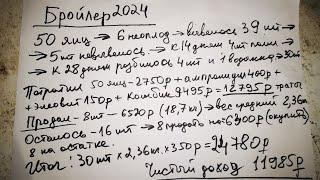 Бройлер 2024
50 яиц → 6 неоплод → вывелось 39 шт
→ 5 шт невывелось → к 14 дням 4 шт пали →
→ к 28 дням разбилось 4 шт и 1 ворона →
Потратил 50 яиц - 2750р + ампролиум 400р +
+ Элеовит 150р + Комбик 9495р = 12795р траты
Продал - 8 шт - 6520р (18,7 кг) → вес средний 2,36кг
Осталось - 16 шт → 8 продать по
8 на остатке.
Итог: 30 шт × 2,36кг × 350р = 24780р
Чистый доход 11985р